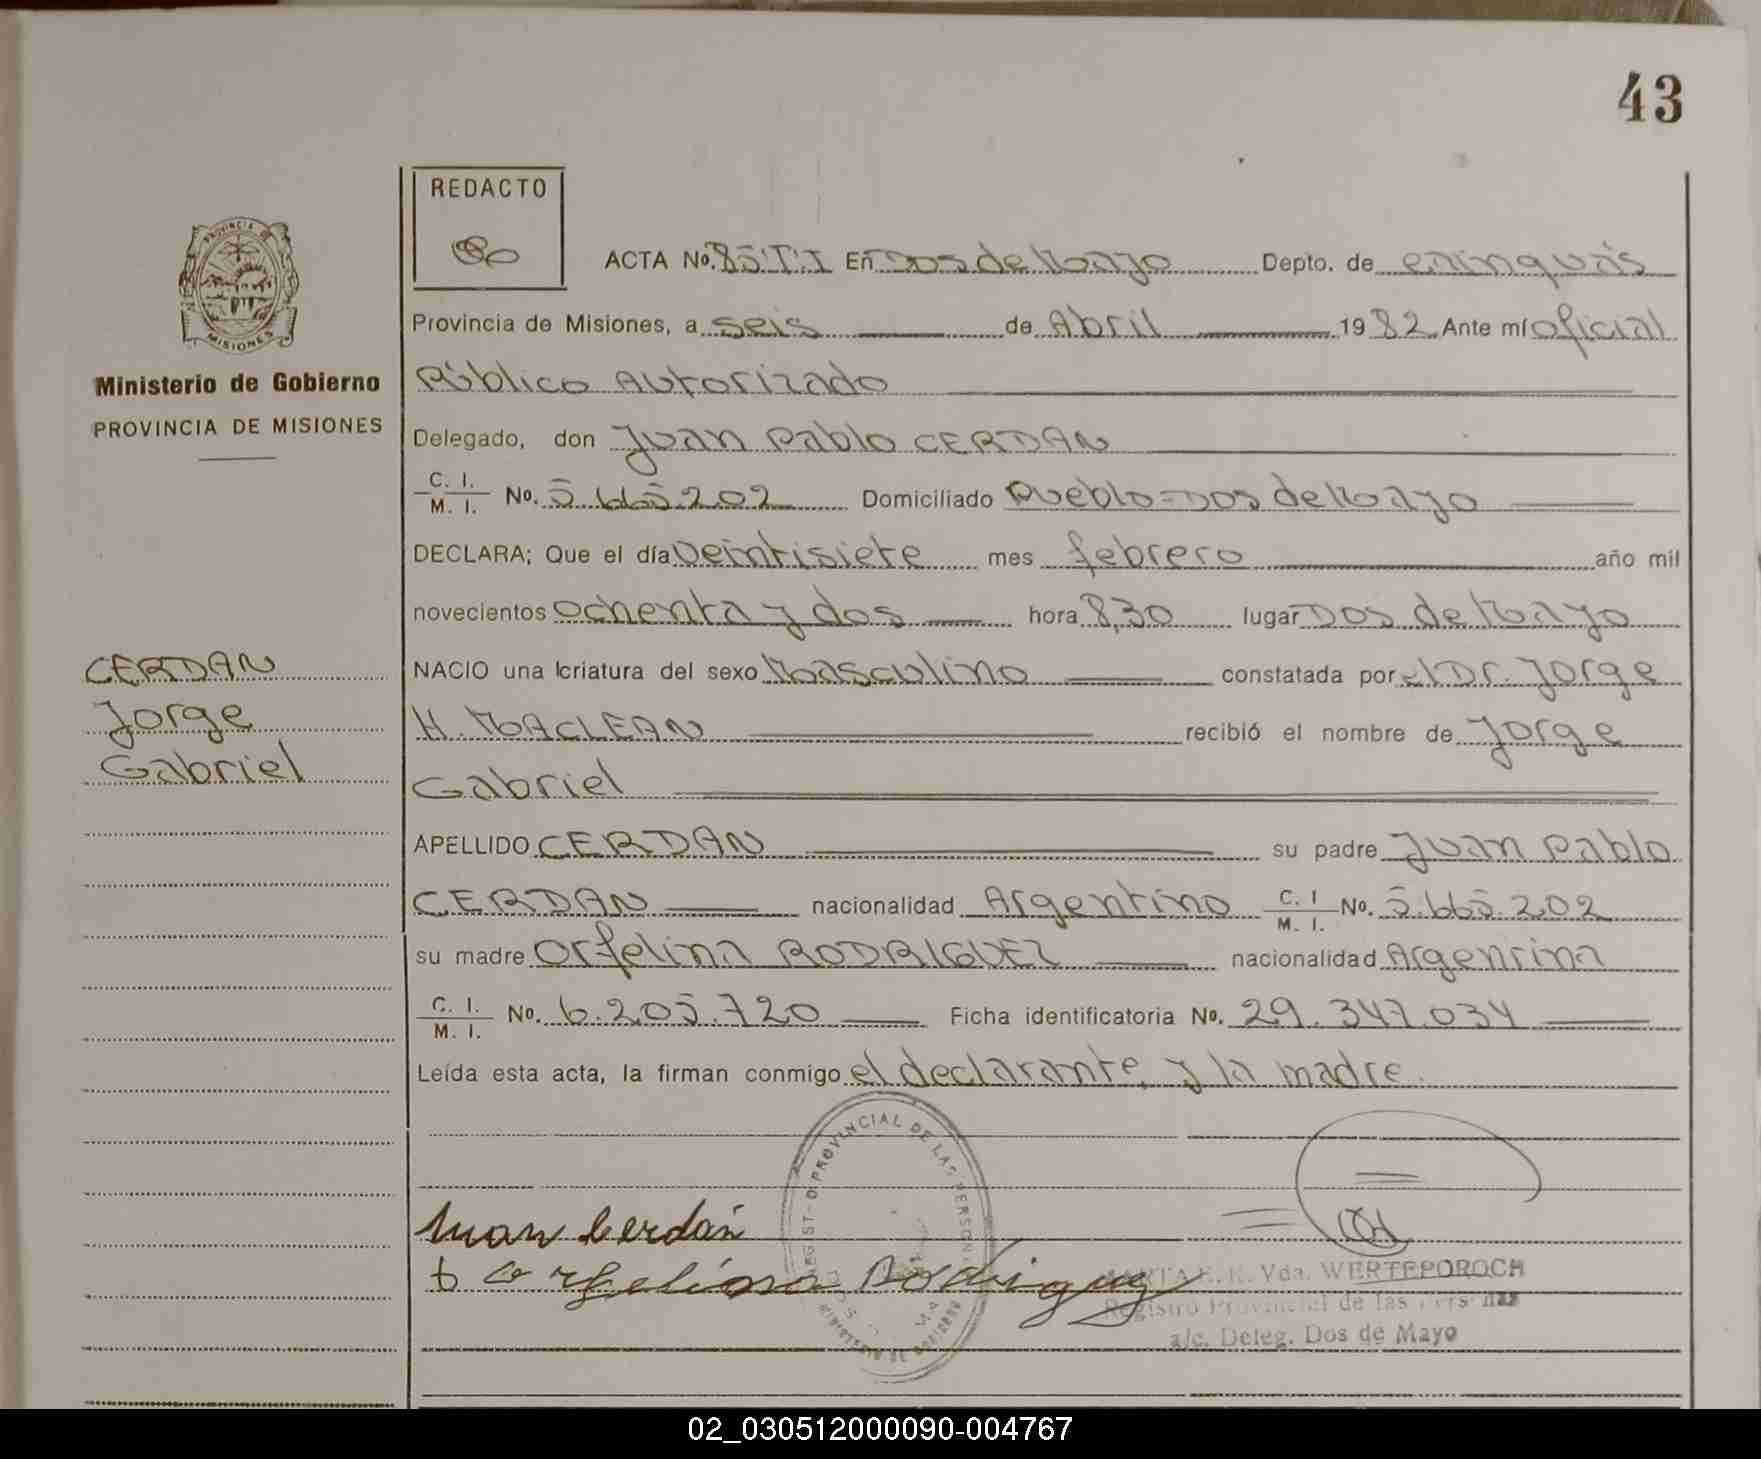 43
REDACTO
PROVINCIA DE
MISIONES
Ministerio de Gobierno
PROVINCIA DE MISIONES
ACTA No. 85 T.I En Dos de Mayo Depto. de
Provincia de Misiones, a seis de Abril 1982 Ante mí oficial
Público Autorizado
Delegado, don Juan Pablo CERDAN
C. I.
M. I. No. 5.665.202 Domiciliado Pueblo-Dos de Mayo
DECLARA; Que el día Veintisiete mes febrero año mil
novecientos ochenta y dos hora 8,30 lugar Dos de Mayo
NACIO una criatura del sexo Masculino constatada por el Dr. Jorge
H. MACLEAN recibió el nombre de Jorge
Gabriel
APELLIDO CERDAN su padre Juan Pablo
CERDAN nacionalidad Argentino C. I
M. I. No. 5.665.202
su madre Orfelina RODRIGUEZ nacionalidad Argentina
C. I.
M. I. No. 6.205.720 Ficha identificatoria No. 29.347.034
Leída esta acta, la firman conmigo el declarante, y la madre.
CERDAN
Jorge
Gabriel
PROVINCIAL DE LAS PERSON
Juan Cerdán
Rodriguez
MARTA E. K. Vda. WERTEPOROCH
Registro Provincial de las Personas
a/c. Deleg. Dos de Mayo
02_030512000090-004767